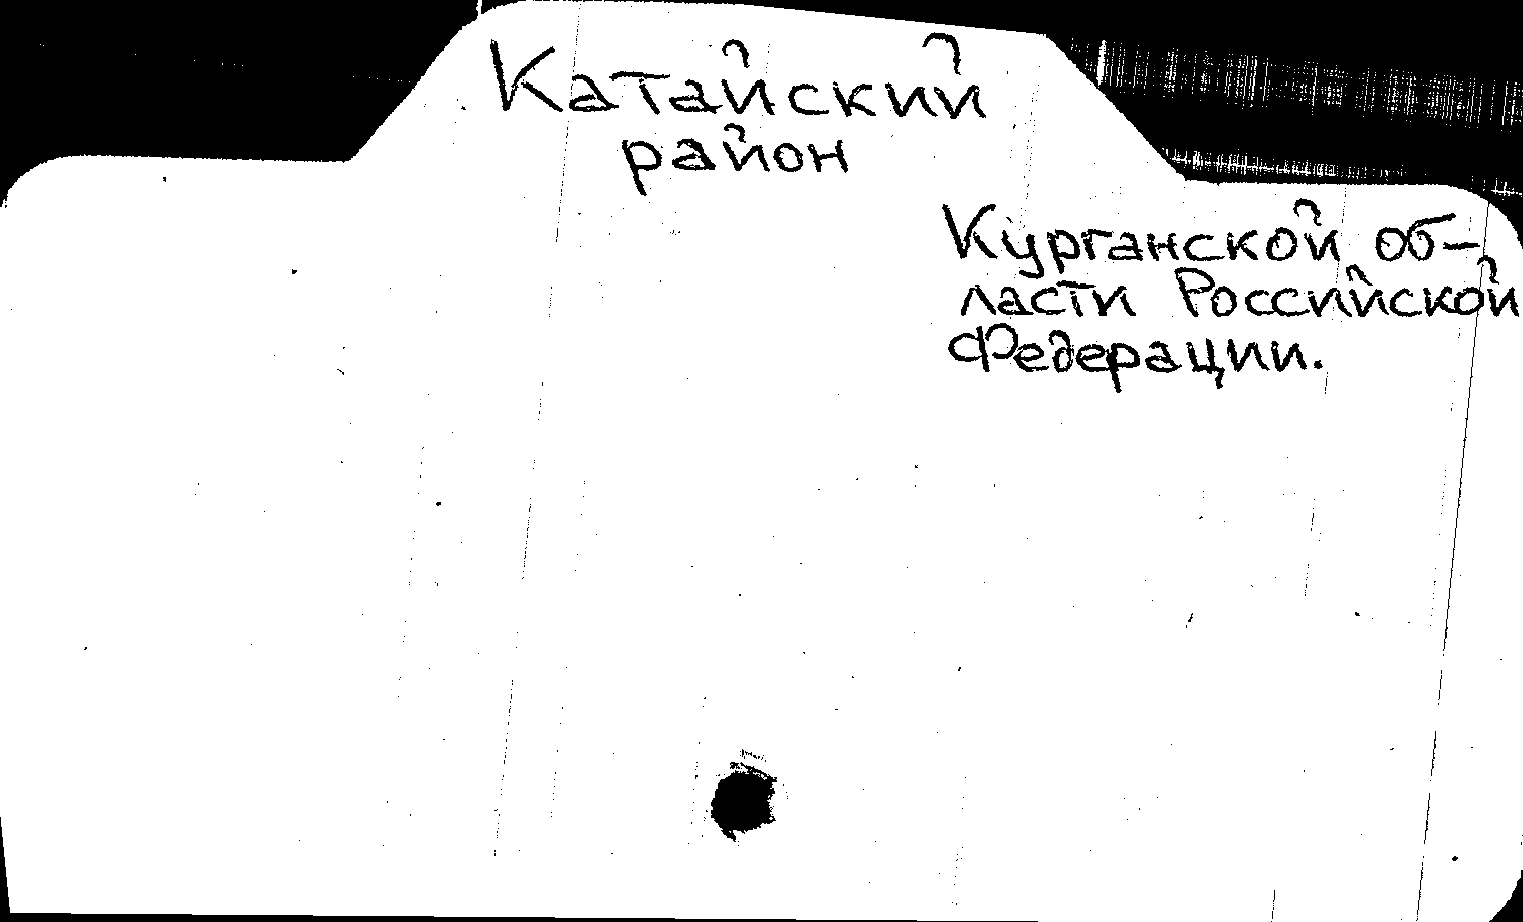 Катайский
район
Курганской об-
ласти Российской
Федерации.